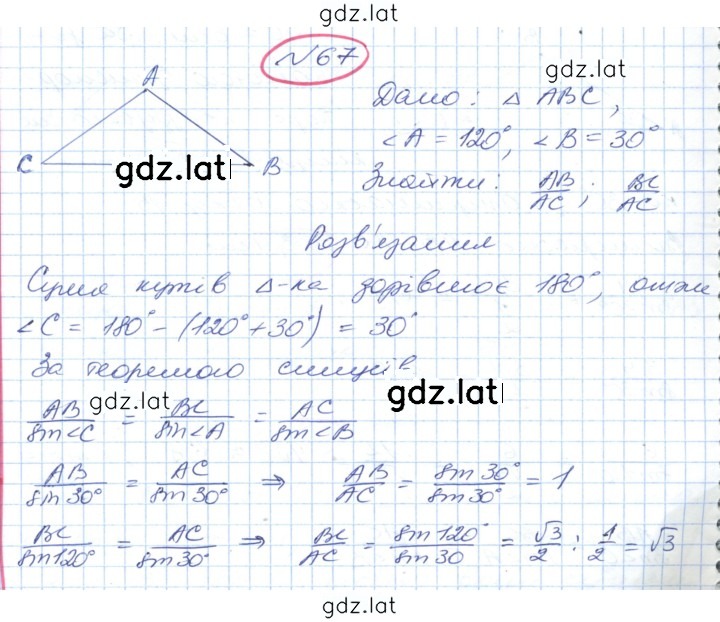 gdz.lat
№67
A
C
B
gdz.lat
Дано: △ ABC,
gdz.lat
∠A = 120°, ∠B = 30°
Знайти: AB/AC; BC/AC
Розв'язання
Сума кутів △-ка дорівнює 180°, отже
∠C = 180° - (120° + 30°) = 30°
За теоремою синусів
gdz.lat
gdz.lat
AB/sin∠C = BC/sin∠A = AC/sin∠B
AB/sin 30° = AC/sin 30° ⇒ AB/AC = sin 30°/sin 30° = 1
BC/sin 120° = AC/sin 30° ⇒ BC/AC = sin 120°/sin 30 = √3/2 : 1/2 = √3
gdz.lat